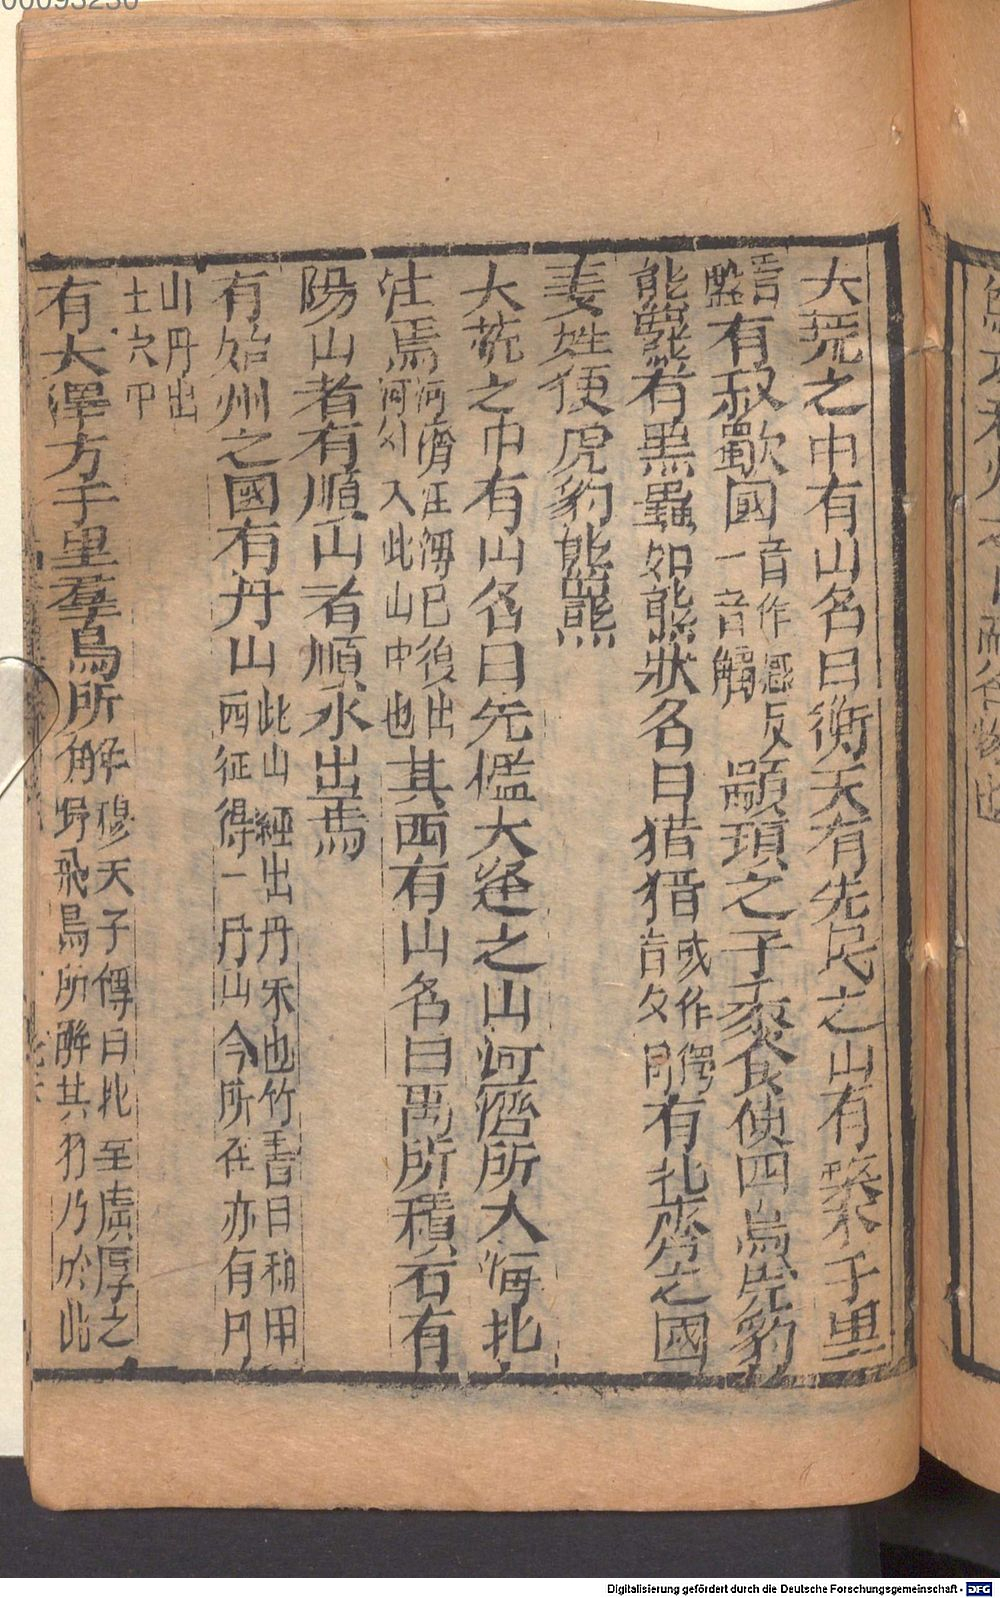 大荒之中有山名曰衡天有先民之山有槃木千里
音盤有叔歜國音作感反一音觸顓頊之子黍食使四鳥虎豹
熊羆有黑蟲如熊狀名曰猎猎或作㺉音夕同有北齊之國
姜姓使虎豹熊羆
大荒之中有山名曰先檻大逢之山河濟所入海北
注焉河濟注海已復出河外入此山中也其西有山名曰禹所積石有
陽山者有順山者順水出焉
有始州之國有丹山此山經出丹朱也竹書曰和甲西征得一丹山今所在亦有丹
山丹出土穴中
有大澤方千里羣鳥所解穆天子傳曰北至廣原之野飛鳥所解其羽乃於此
00093230
Digitalisierung gefördert durch die Deutsche Forschungsgemeinschaft - DFG